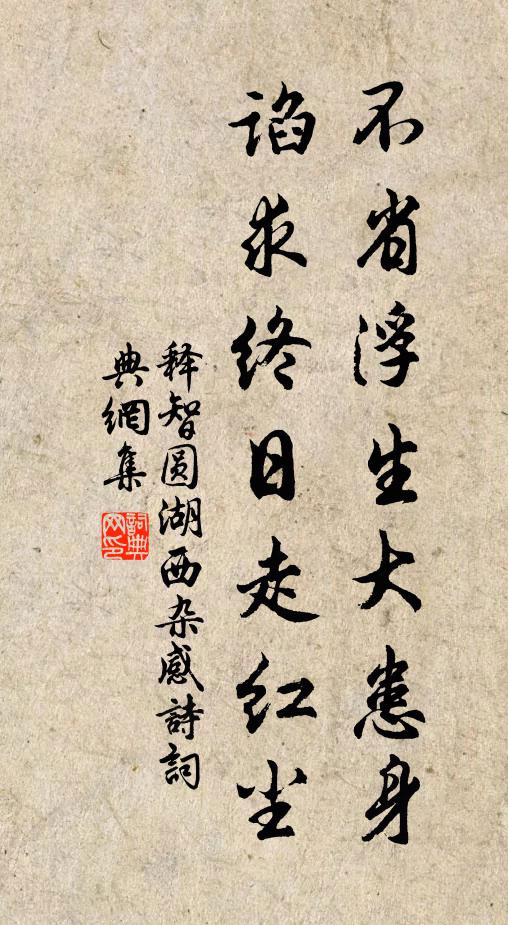 不省浮生大患身
谄求终日走红尘
释智圆湖西杂感詩词
典網集
詞典网印